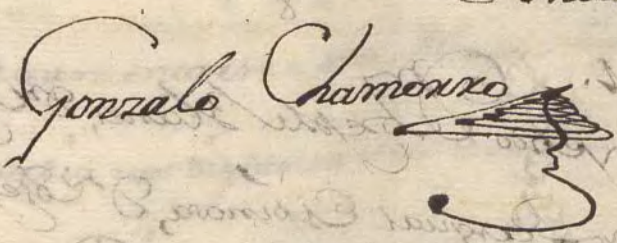 Gonzalo Chamorro